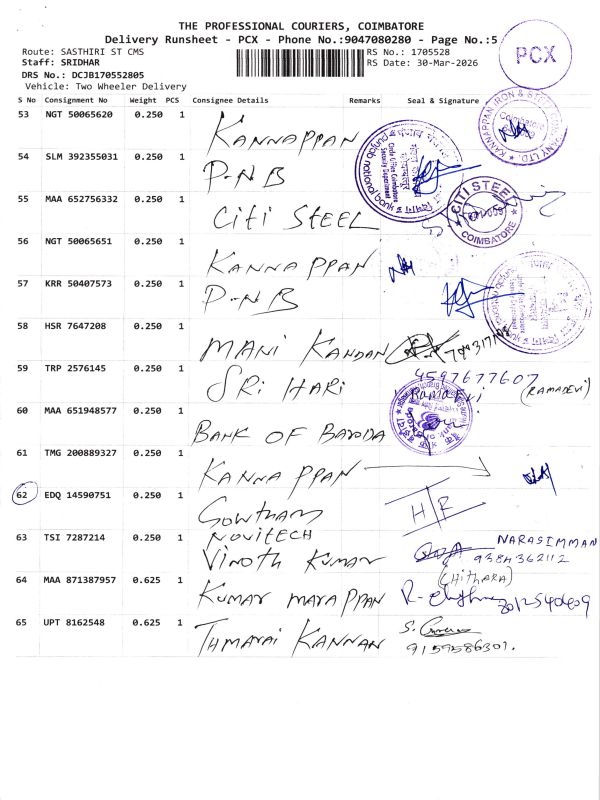 THE PROFESSIONAL COURIERS, COIMBATORE
Delivery Runsheet - PCX - Phone No.:9047080280 - Page No.:5
Route: SASTHIRI ST CMS
RS No.: 1705528
Staff: SRIDHAR
RS Date: 30-Mar-2026
DRS No.: DCJB170552805
Vehicle: Two Wheeler Delivery
PCX
S No Consignment No Weight PCS Consignee Details Remarks Seal & Signature
53 NGT 50065620 0.250 1 KANNAPPAN
54 SLM 392355031 0.250 1 P-NB
punjab national bank
55 MAA 652756332 0.250 1 CITI STEEL
CITI STEEL
COIMBATORE
56 NGT 50065651 0.250 1 KANNAPPAN
57 KRR 50407573 0.250 1 P-NB
58 HSR 7647208 0.250 1 MANI KANDAN
59 TRP 2576145 0.250 1 SRI HARI
4597677607
(RAMADEVI)
60 MAA 651948577 0.250 1 BANK OF BARODA
61 TMG 200889327 0.250 1 KANNAPPAN
62 EDQ 14590751 0.250 1 GOWTHAM
H/R
63 TSI 7287214 0.250 1 NOVITECH
VINOTH KUMAR
NARASIMMAN
9384362112
64 MAA 871387957 0.625 1 KUMAR MARAPPAN
(CHITHARA)
65 UPT 8162548 0.625 1 THMARAI KANNAN
9159586301.